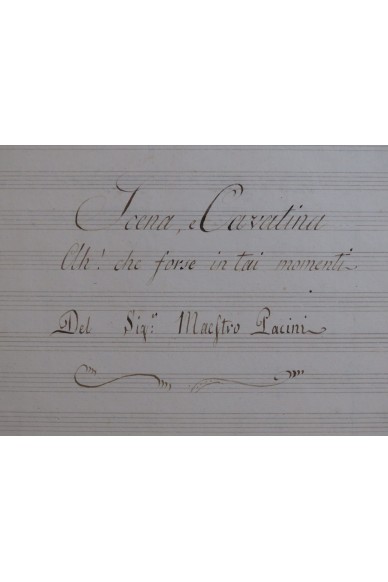 Scena, e Cavatina
Ah! che forse in tai momenti
Del Sig.r Maeſtro Pacini